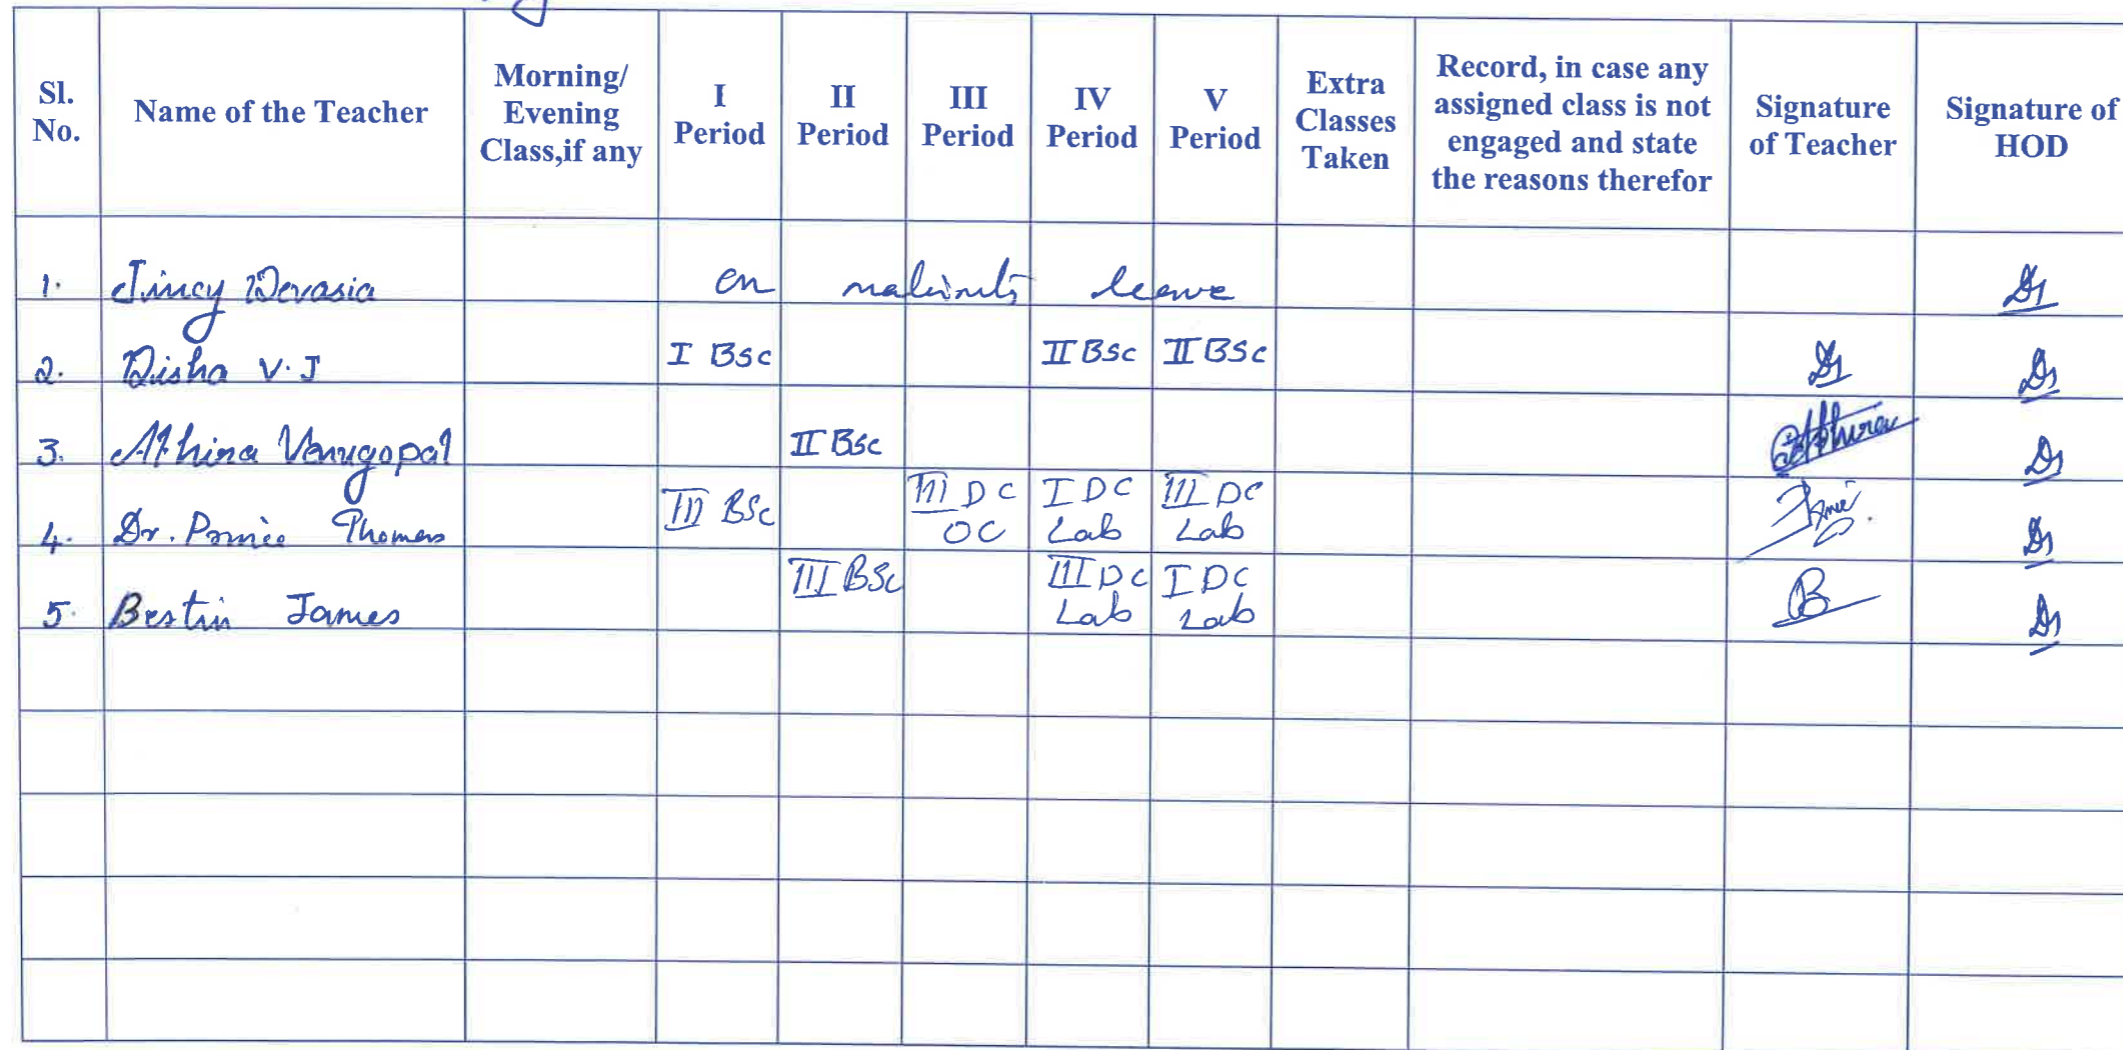 Sl. No. Name of the Teacher Morning/ Evening Class,if any I Period II Period III Period IV Period V Period Extra Classes Taken Record, in case any assigned class is not engaged and state the reasons therefor Signature of Teacher Signature of HOD
1. Jincy Devasia on leave
2. Disha V.J I BSc II BSc II BSc
3. Athira Venugopal II BSc
4. Dr. Thomas III BSc III DC OC I DC Lab III DC Lab
5. Bestin James III BSc III DC Lab I DC Lab